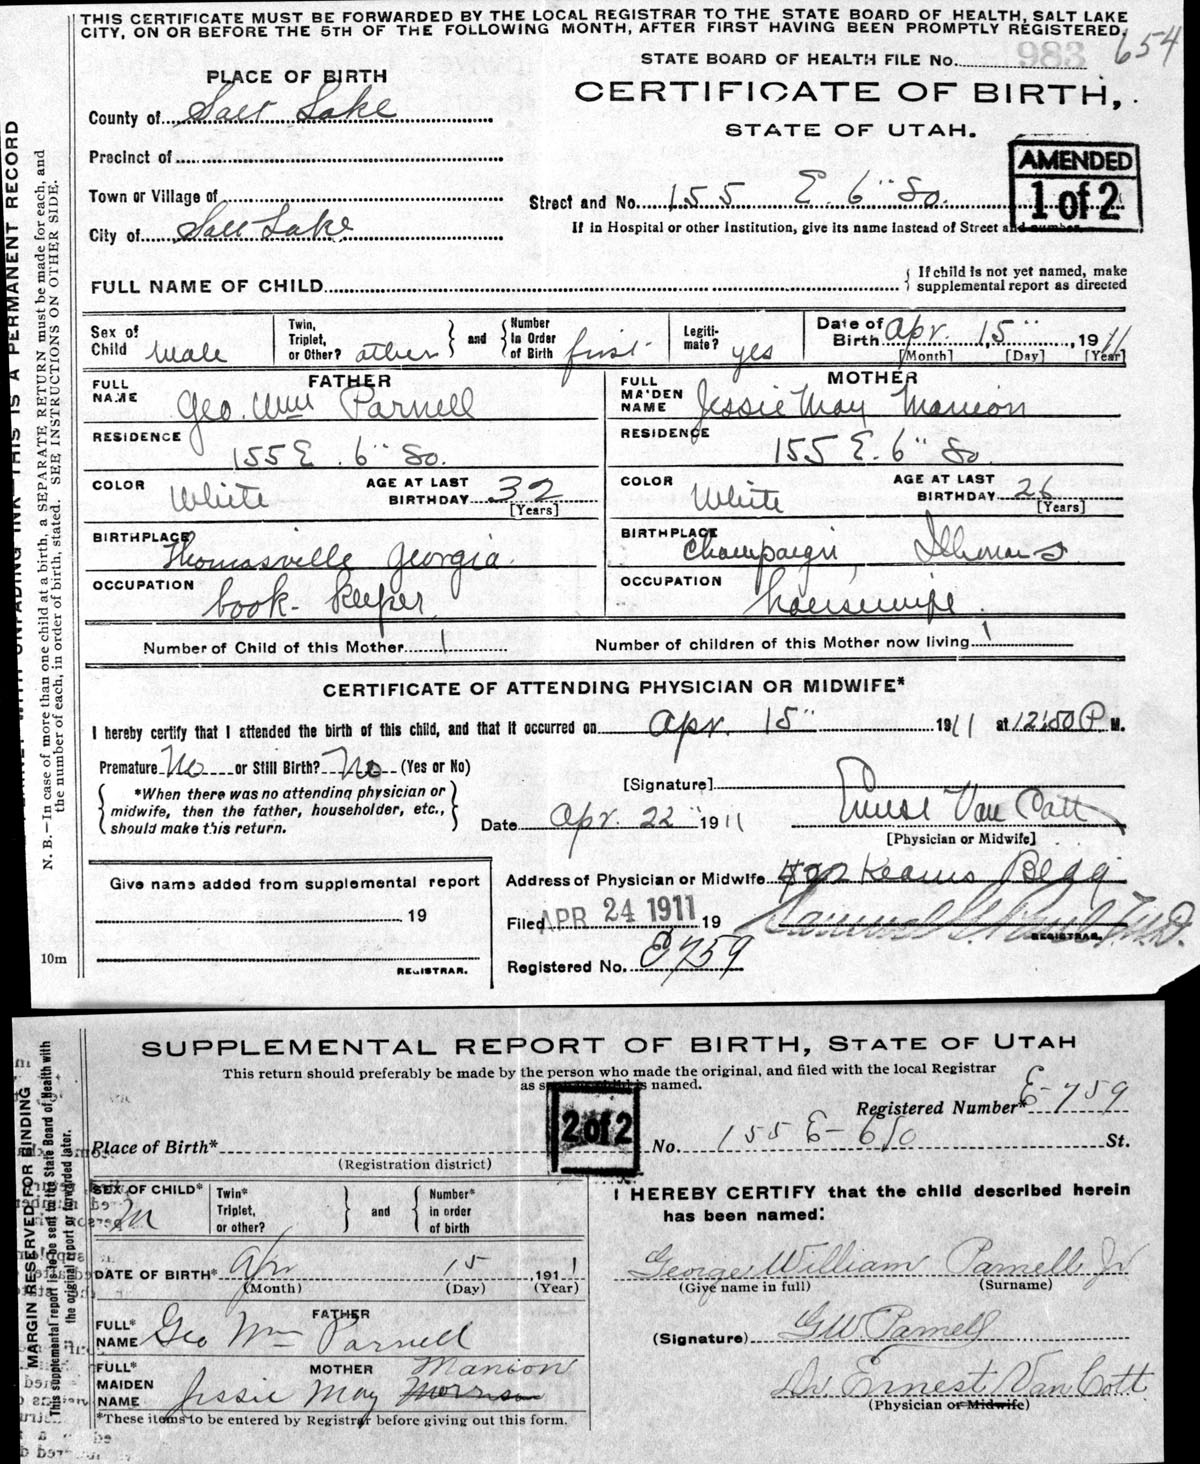 THIS CERTIFICATE MUST BE FORWARDED BY THE LOCAL REGISTRAR TO THE STATE BOARD OF HEALTH, SALT LAKE
CITY, ON OR BEFORE THE 5TH OF THE FOLLOWING MONTH, AFTER FIRST HAVING BEEN PROMPTLY REGISTERED.
654
STATE BOARD OF HEALTH FILE No. 983
PLACE OF BIRTH
CERTIFICATE OF BIRTH,
STATE OF UTAH.
County of Salt Lake
Precinct of
AMENDED
1 of 2
Town or Village of
Street and No. 155 E. 6" So.
City of Salt Lake
If in Hospital or other Institution, give its name instead of Street and number.
FULL NAME OF CHILD
If child is not yet named, make
supplemental report as directed
Sex of Child Male
Twin, Triplet, or Other? other
and
Number in Order of Birth first
Legitimate? yes
Date of Birth Apr. 15" 1911
[Month] [Day] [Year]
FATHER
FULL NAME Geo. Wm Parnell
MOTHER
FULL MAIDEN NAME Jessie May Manion
RESIDENCE 155 E. 6" So.
RESIDENCE 155 E. 6" So.
COLOR White
AGE AT LAST BIRTHDAY 32 [Years]
COLOR White
AGE AT LAST BIRTHDAY 26 [Years]
BIRTHPLACE Thomasville Georgia
BIRTHPLACE Champaign, Illinois
OCCUPATION book-keeper
OCCUPATION housewife
Number of Child of this Mother 1
Number of children of this Mother now living 1
CERTIFICATE OF ATTENDING PHYSICIAN OR MIDWIFE*
I hereby certify that I attended the birth of this child, and that it occurred on Apr. 15" 1911 at 12:50 P M.
Premature No or Still Birth? No (Yes or No)
*When there was no attending physician or
midwife, then the father, householder, etc.,
should make this return.
[Signature]
Date Apr. 22" 1911
Ernest Van Cott
[Physician or Midwife]
Give name added from supplemental report
19
REGISTRAR.
Address of Physician or Midwife Kearns Bldg
Filed APR 24 1911 19
REGISTRAR.
Registered No. E759
10m
THIS IS A PERMANENT RECORD
N. B.—In case of more than one child at a birth, a SEPARATE RETURN must be made for each, and
the number of each, in order of birth, stated. SEE INSTRUCTIONS ON OTHER SIDE.
SUPPLEMENTAL REPORT OF BIRTH, STATE OF UTAH
This return should preferably be made by the person who made the original, and filed with the local Registrar
as is named.
2 of 2
Registered Number* E-759
Place of Birth*
(Registration district)
No. 155 E-6 So St.
SEX OF CHILD* M
Twin* Triplet, or other?
and
Number* in order of birth
DATE OF BIRTH* Apr 15, 1911
(Month) (Day) (Year)
FATHER
FULL* NAME Geo Wm Parnell
MOTHER
FULL* MAIDEN NAME Jessie May Manion
*These items to be entered by Registrar before giving out this form.
I HEREBY CERTIFY that the child described herein
has been named:
George William Parnell Jr
(Give name in full) (Surname)
(Signature) G W Parnell
Dr Ernest Van Cott
(Physician or Midwife)
MARGIN RESERVED FOR BINDING
This supplemental report is to be sent to the State Board of Health with
the original report or forwarded later.